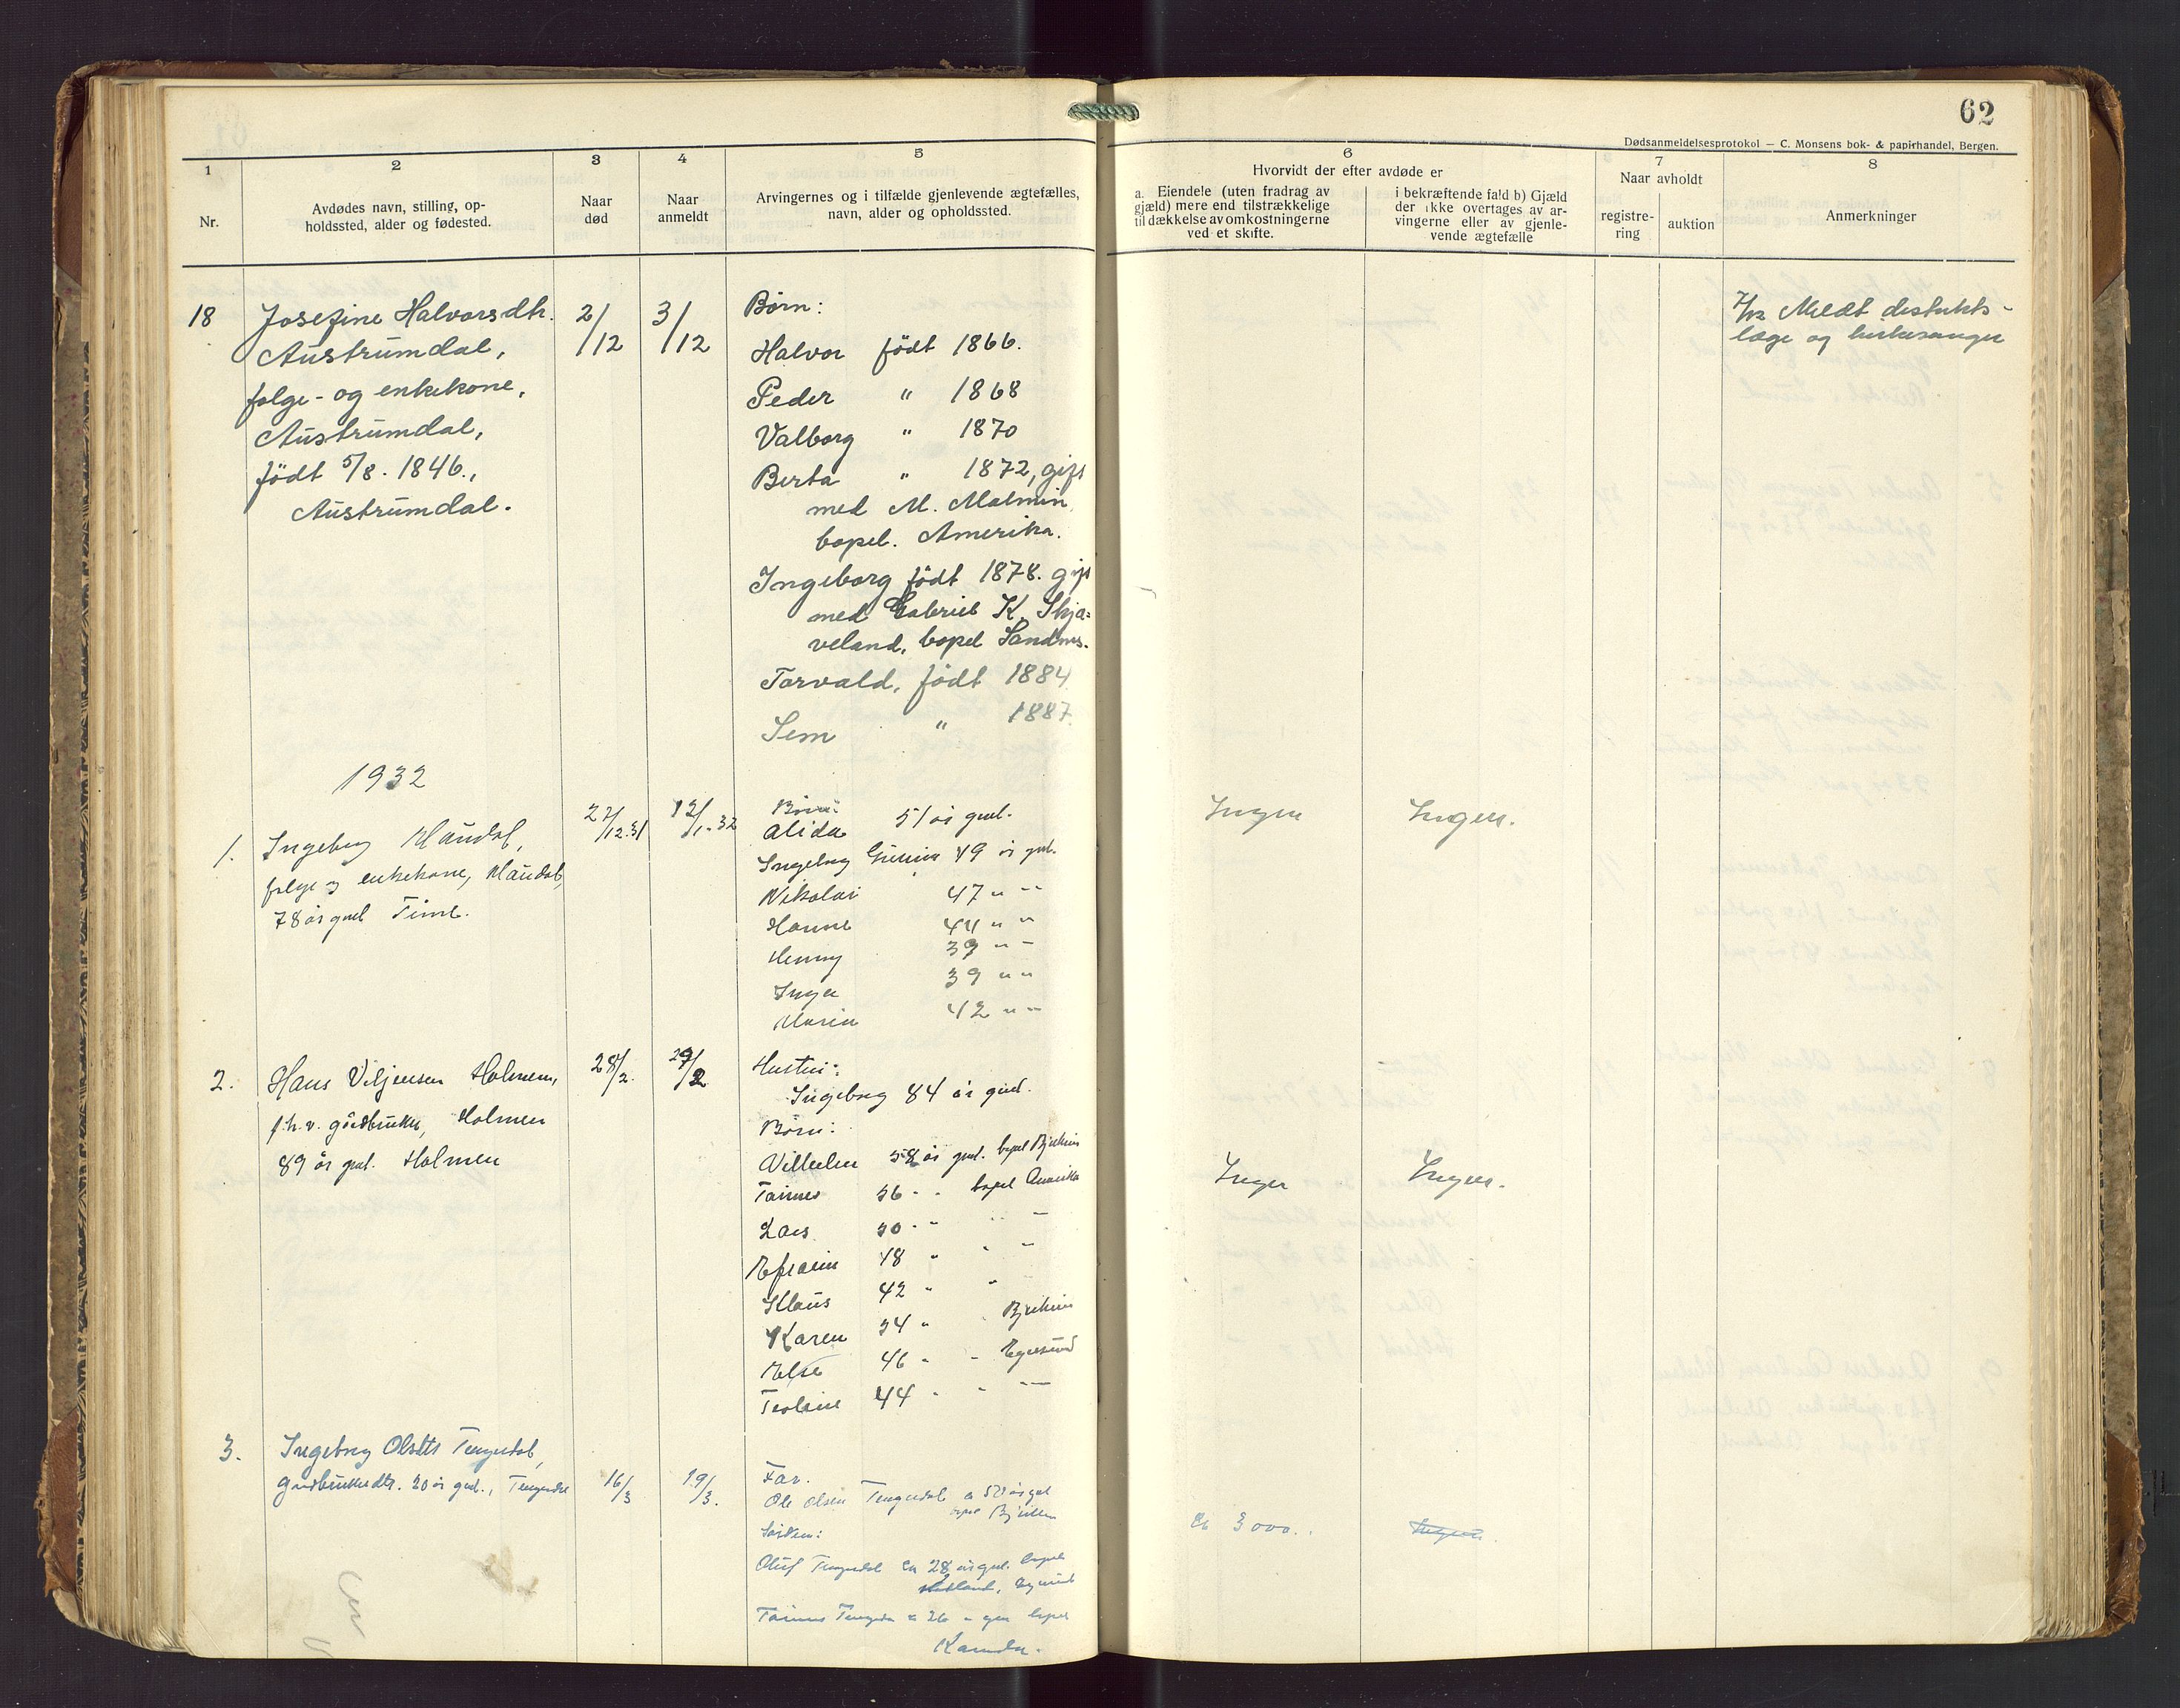 62
Dødsanmeldelsesprotokol — C. Monsens bok- & papirhandel, Bergen.
1
Nr.
2
Avdødes navn, stilling, op-
holdssted, alder og fødested.
3
Naar
død
4
Naar
anmeldt
5
Arvingernes og i tilfælde gjenlevende ægtefælles,
navn, alder og opholdssted.
6
Hvorvidt der efter avdøde er
a. Eiendele (uten fradrag av
gjæld) mere end tilstrækkelige
til dækkelse av omkostningerne
ved et skifte.
i bekræftende fald b) Gjæld
der ikke overtages av ar-
vingerne eller av gjenle-
vende ægtefælle
7
Naar avholdt
registre-
ring
auktion
8
Anmerkninger
18
Josefine Halvorsdtr.
Austrumdal,
folge- og enkekone,
Austrumdal,
født 5/8. 1846.,
Austrumdal.
2/12
3/12
Børn:
Halvor født 1866.
Peder " 1868
Valborg " 1870
Berta " 1872, gift
med M. Malmin
bopel. Amerika.
Ingeborg født 1878. gift
med Gabriel K. Skja=
veland, bopel Sandnes.
Torvald, født 1884
Sem " 1887.
Meldt distrikts-
læge og kirkesanger
1932
1.
Ingeborg Maudal,
folge og enkekone, Maudal,
78 år gml Time.
27/12.31
12/1-32
Børn:
Alida 51 år gml.
Ingeborg 49 år gml.
Nikolai 47 " "
Hanne 44 " "
Henny 39 " "
Inga 39 " "
Maria 42 " "
Ingen
Ingen.
2.
Hans Viljensen Holmen,
f.h.v. gårdbruker, Holmen
89 år gml. Holmen
28/2.
29/2
Hustru:
Ingeborg 84 år gml.
Børn:
Villelm 58 år gml. bopel Bjerkreim
Tønnes 56 " " bopel Amerika
Lars 50 " " " "
Efraim 48 " " "
Klaus 42 " "
Karen 54 " " Bjerkreim
Else 46 " " Egersund
Teoline 44 " " "
Ingen
Ingen.
3.
Ingeborg Olsdtr Tengesdal,
gårdbrukerdtr. 20 år gml., Tengesdal
16/3
19/3.
Far.
Ole Olsen Tengesdal
bopel Bjerkreim
Søsken:
Oluf Tengesdal ca 28 år gml. bopel
Egersund
Tønnes Tengesdal ca 26 " gml bopel
Kanada.
ca 3000.
Ingen